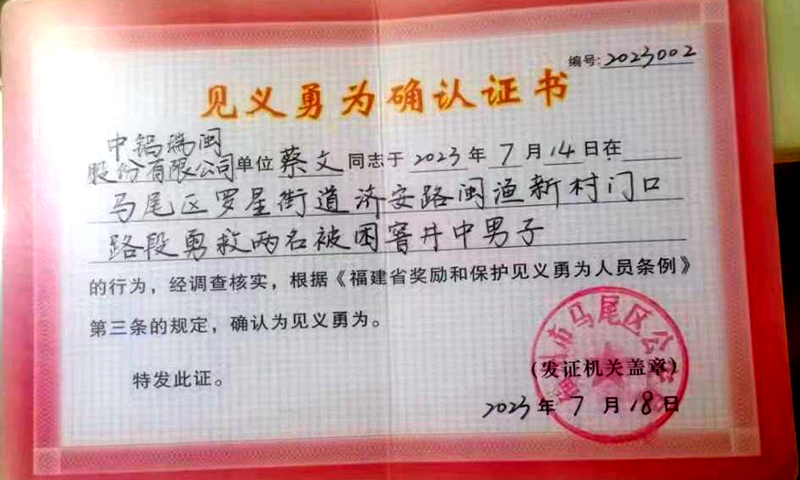 编号:2023002
见义勇为确认证书
中铝瑞闽
股份有限公司单位蔡文同志于2023年7月14日在
马尾区罗星街道济安路闽渔新村门口
路段勇救两名被困窨井中男子
的行为，经调查核实，根据《福建省奖励和保护见义勇为人员条例》
第三条的规定，确认为见义勇为。
特发此证。
市马尾区公
(发证机关盖章)
2023年7月18日